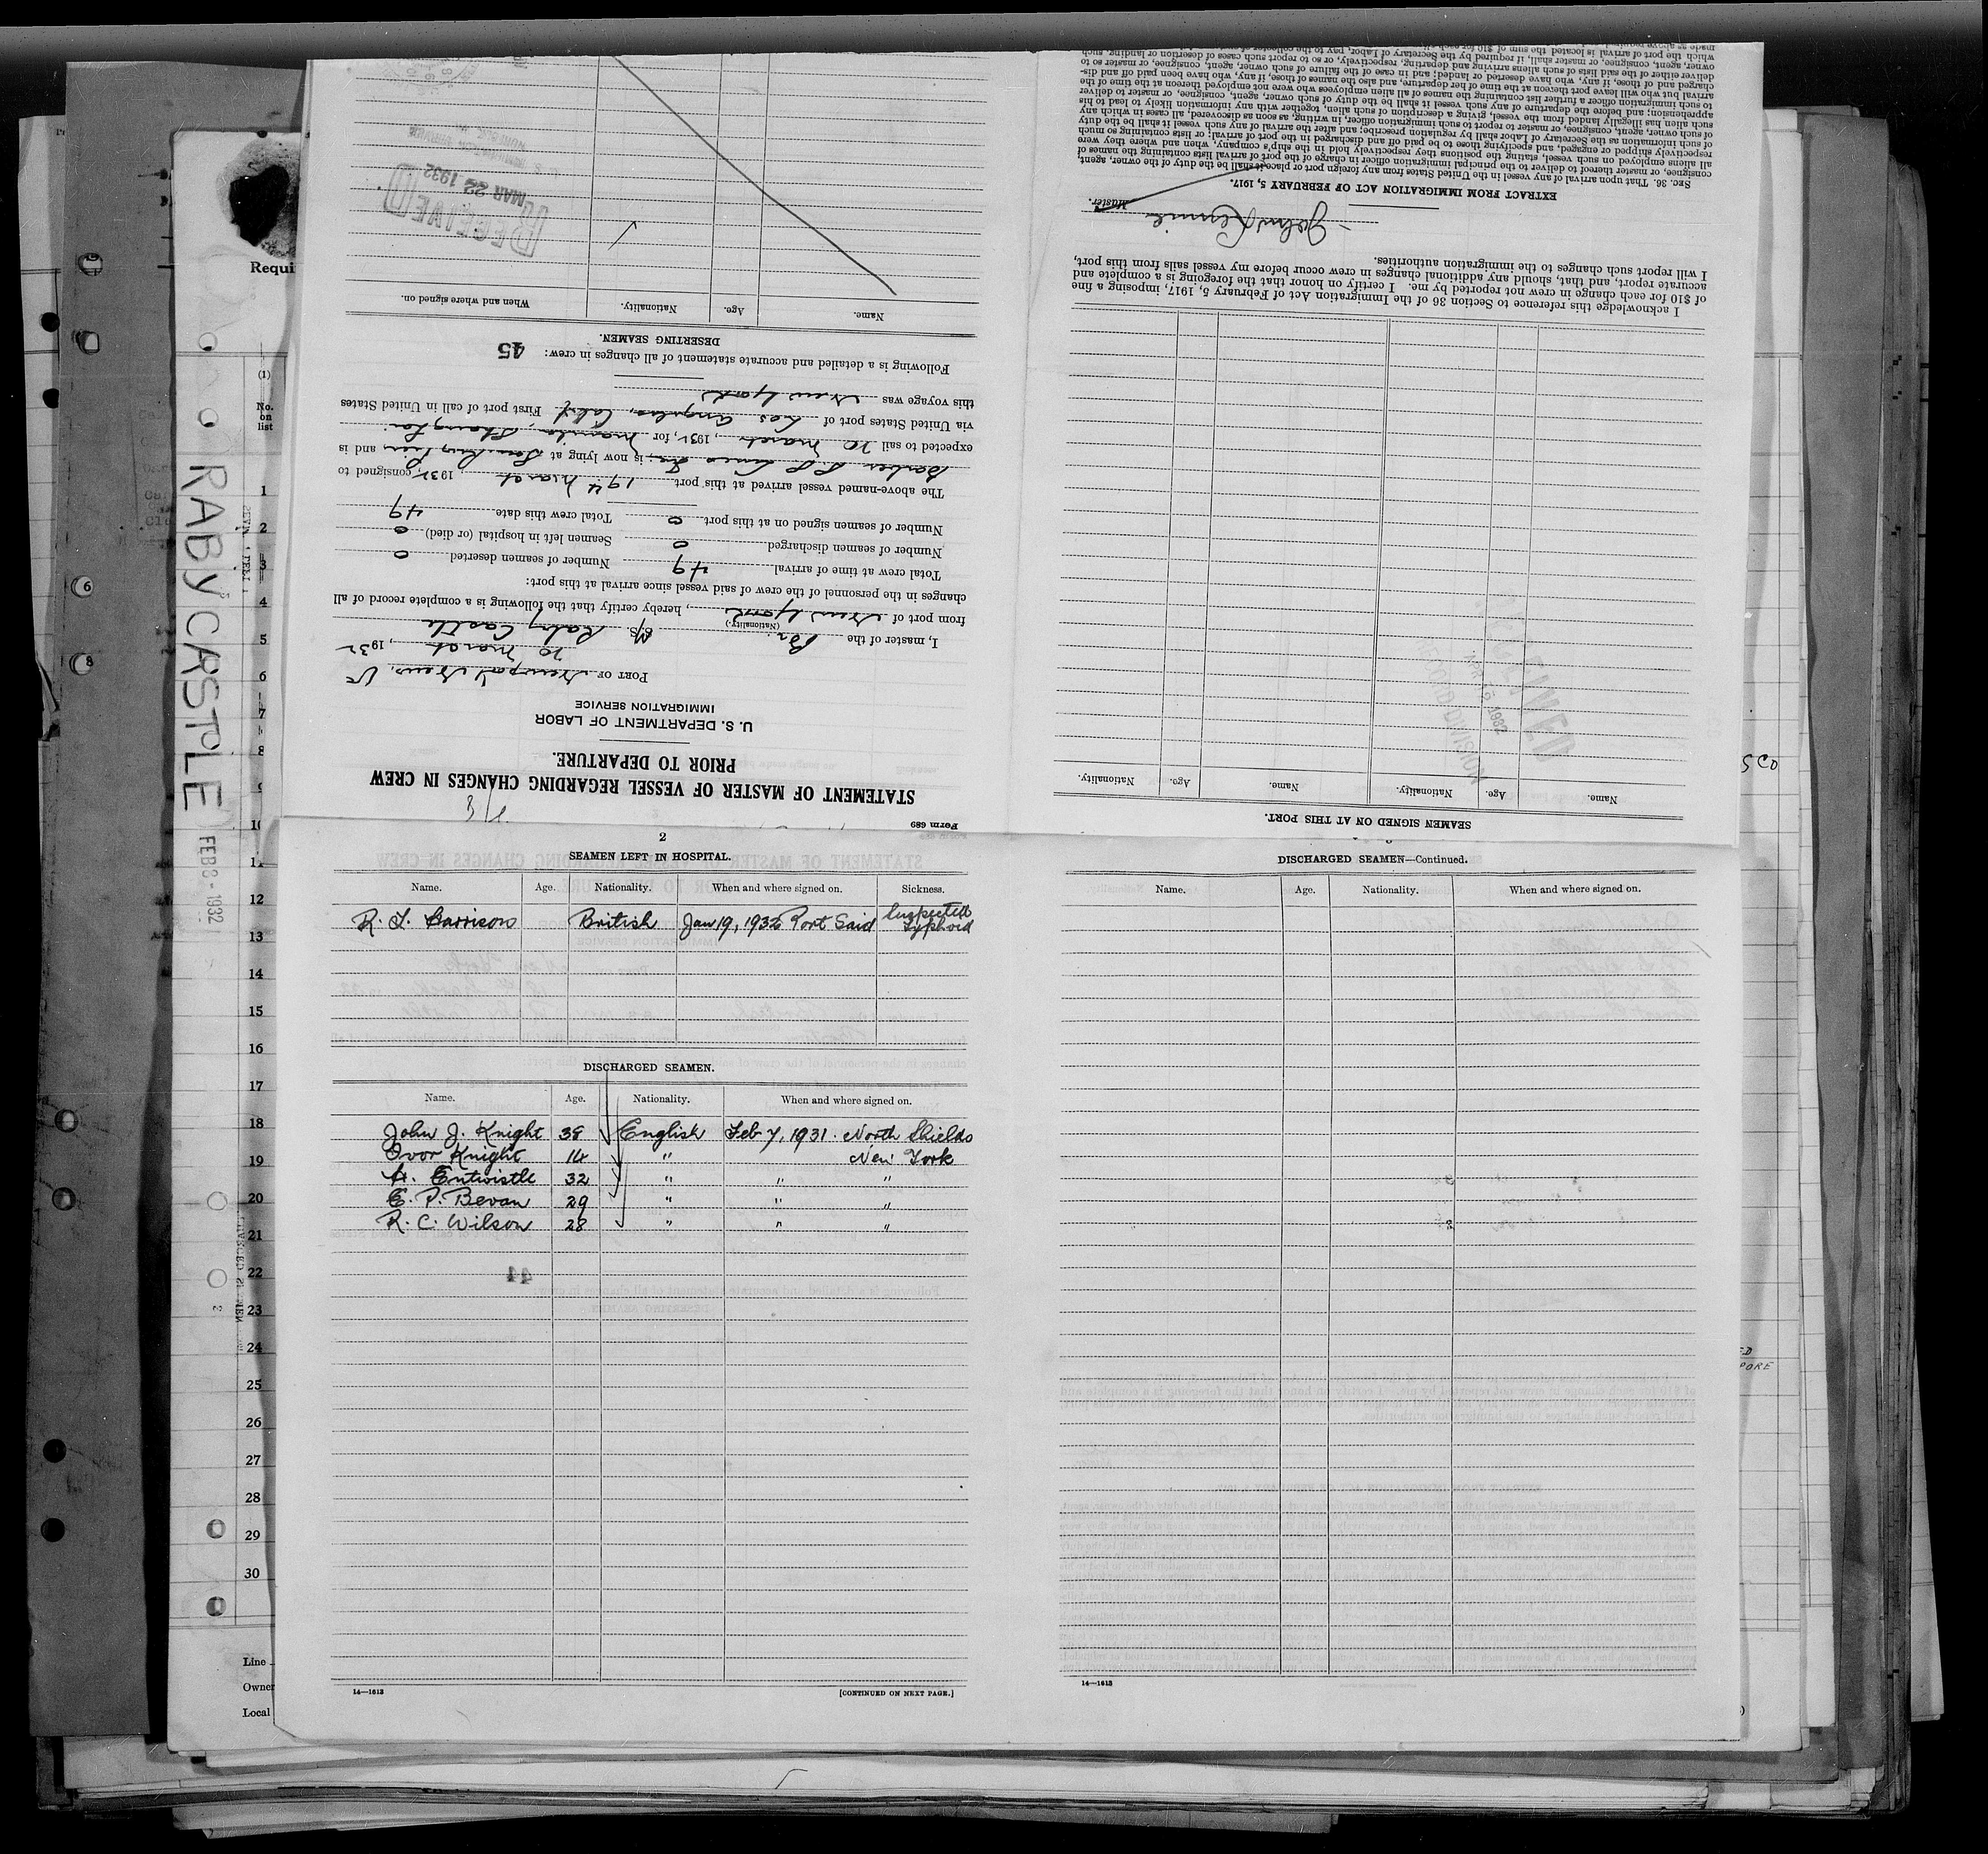 Requi
(1)
No.
on
list
RABY CASTLE
FEB 8-1932
1
2
3
4
5
6
7
8
10
11
12
13
14
15
16
17
18
19
20
21
22
23
24
25
26
27
28
29
30
Line
Owner
Local
Form 689
STATEMENT OF MASTER OF VESSEL REGARDING CHANGES IN CREW
PRIOR TO DEPARTURE.
U. S. DEPARTMENT OF LABOR
IMMIGRATION SERVICE
PORT OF Newport News. Va
20 March, 1932
I, master of the Br. M/S. Raby Castle
(Nationality.)
from port of New York, hereby certify that the following is a complete record of all
changes in the personnel of the crew of said vessel since arrival at this port:
Total crew at time of arrival 49 Number of seamen deserted 0
Number of seamen discharged 0 Seamen left in hospital (or died) 0
Number of seamen signed on at this port 0 Total crew this date 49
The above-named vessel arrived at this port 19th March, 1932, consigned to
Barber SS Lines Inc; is now lying at pier and is
expected to sail 20 March, 1932, for Manila, Shanghai
via United States port of Los Angeles, Calif First port of call in United States
this voyage was New York
Following is a detailed and accurate statement of all changes in crew: 45
DESERTING SEAMEN.
Name. Age. Nationality. When and where signed on.
RECEIVED
MAR 22 1932
SEAMEN SIGNED ON AT THIS PORT.
Name. Age. Nationality. Name. Age. Nationality.
RECEIVED
1932
RECORD DIVISION
I acknowledge this reference to Section 36 of the Immigration Act of February 5, 1917, imposing a fine
of $10 for each change in crew not reported by me. I certify on honor that the foregoing is a complete and
accurate report, and that, should any additional changes in crew occur before my vessel sails from this port,
I will report such changes to the immigration authorities.
John Rennie
Master.
EXTRACT FROM IMMIGRATION ACT OF FEBRUARY 5, 1917.
Sec. 36. That upon arrival of any vessel in the United States from any foreign port or place it shall be the duty of the owner, agent,
consignee, or master thereof to deliver to the principal immigration officer in charge of the port of arrival lists containing the names of
all aliens employed on such vessel, stating the positions they respectively hold in the ship's company, when and where they were
respectively shipped or engaged, and specifying those to be paid off and discharged in the port of arrival; or lists containing so much
of such information as the Secretary of Labor shall by regulation prescribe; and after the arrival of any such vessel it shall be the duty
of such owner, agent, consignee, or master to report to such immigration officer, in writing, as soon as discovered, all cases in which any
such alien has illegally landed from the vessel, giving a description of such alien, together with any information likely to lead to his
apprehension; and before the departure of any such vessel it shall be the duty of such owner, agent, consignee, or master to deliver
to such immigration officer a further list containing the names of all alien employees who were not employed thereon at the time of the
arrival but who will leave port thereon at the time of her departure, and also the names of those, if any, who have been paid off and dis-
charged and of those, if any, who have deserted or landed; and in case of the failure of such owner, agent, consignee, or master so to
deliver either of the said lists of such aliens arriving and departing, respectively, or so to report such cases of desertion or landing, such
owner, agent, consignee, or master shall, if required by the Secretary of Labor, pay to the collector of customs
which the port of arrival is located the sum of $10 for each
2
SEAMEN LEFT IN HOSPITAL.
Name. Age. Nationality. When and where signed on. Sickness.
R. T. Garrison British Jan 19, 1932 Port Said Suspected Typhoid
DISCHARGED SEAMEN.
Name. Age. Nationality. When and where signed on.
John J. Knight 38 English Feb 7, 1931. North Shields
Ivor Knight 14 " New York
H. Entwistle 32 " " "
E. P. Bevan 29 " " "
R. C. Wilson 28 " " "
44
14—1613 [CONTINUED ON NEXT PAGE.]
DISCHARGED SEAMEN—Continued.
Name. Age. Nationality. When and where signed on.
14—1613